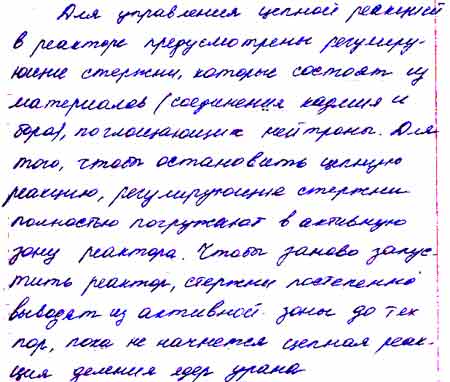 Для управления цепной реакцией
в реакторе предусмотрены регулиру-
ющие стержни, которые состоят из
материалов (соединения кадмия и
бора), поглощающих нейтроны. Для
того, чтобы остановить цепную
реакцию, регулирующие стержни
полностью погружают в активную
зону реактора. Чтобы заново запус-
тить реактор, стержни постепенно
выводят из активной зоны до тех
пор, пока не начнется цепная реак-
ция деления ядер урана